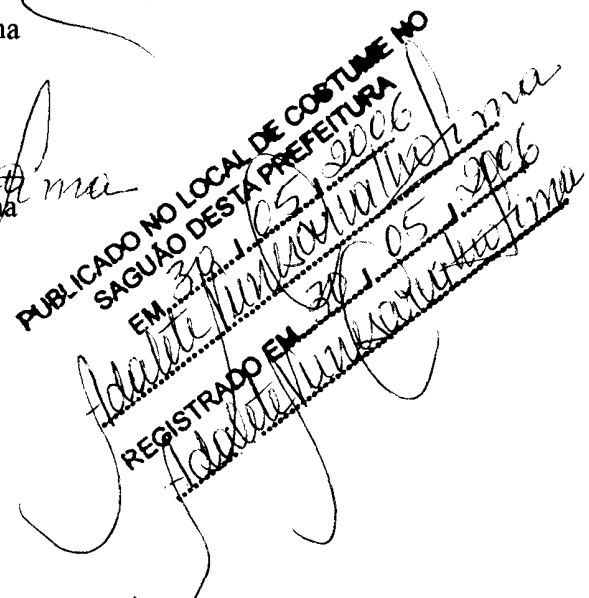 na
ma
PUBLICADO NO LOCAL DE COSTUME NO
SAGUÃO DESTA PREFEITURA
EM 30 / 05 / 2006
Adalete Nunes Carvalho Lima
REGISTRADO EM 30 / 05 / 2006
Adalete Nunes Carvalho Lima